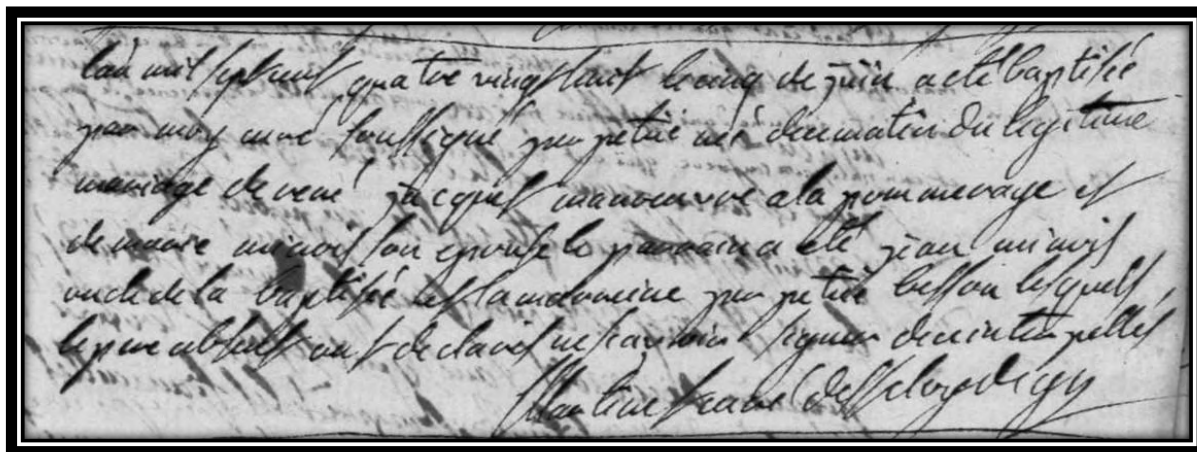 lan mil sept cent quatre vingt huit le cinq de juin a eté baptisée
par moy curé soussigné perpetüe née de ce matin du legitime
mariage de rené jacquet manoeuvre a la pommeraye et
de marie minois son epouse le parrain a eté jean minois
oncle de la baptisée et la marraine perpetüe besson lesquels
le pere absent ont declaré ne scavoir signer de ce interpellés
curé de